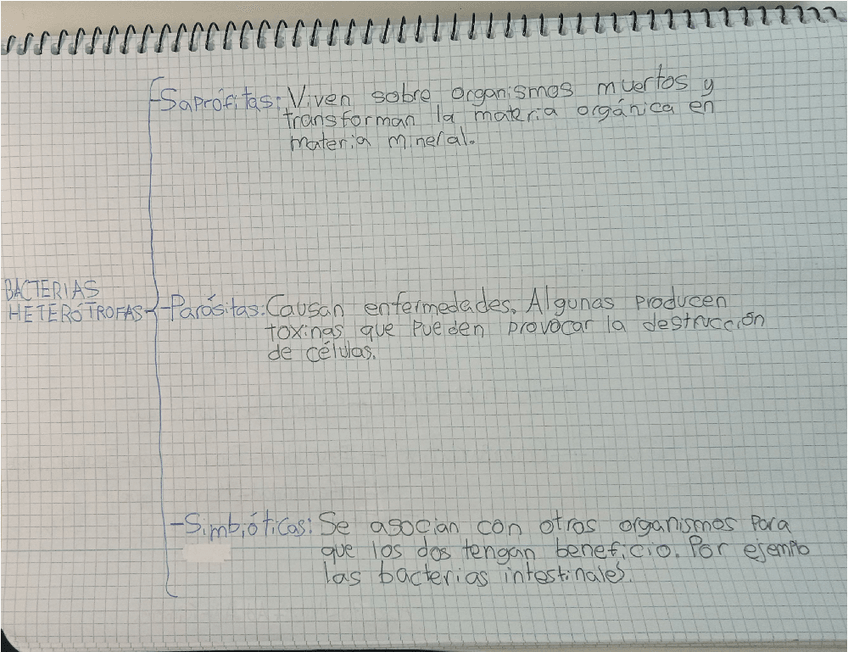 -Saprófitas: Viven sobre organismos muertos y
transforman la materia orgánica en
materia mineral.
BACTERIAS
HETERÓTROFAS
-Parásitas: Causan enfermedades. Algunas producen
toxinas que pueden provocar la destrucción
de células.
-Simbióticas: Se asocian con otros organismos para
que los dos tengan beneficio. Por ejemplo
las bacterias intestinales.